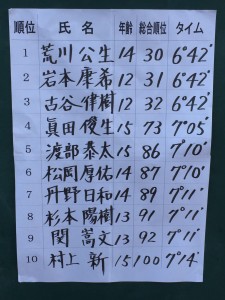 順位 氏名 年齢 総合順位 タイム
1 荒川公生 14 30 6°42"
2 岩本康希 12 31 6°42"
3 古谷倖樹 12 32 6°42"
4 眞田俊生 15 73 7°05"
5 渡部泰太 15 86 7°10"
6 松岡厚佑 14 87 7°10"
7 丹野日和 14 89 7°11"
8 杉本陽樹 13 91 7°11"
9 関嵩文 13 92 7°11"
10 村上新 15 100 7°14"